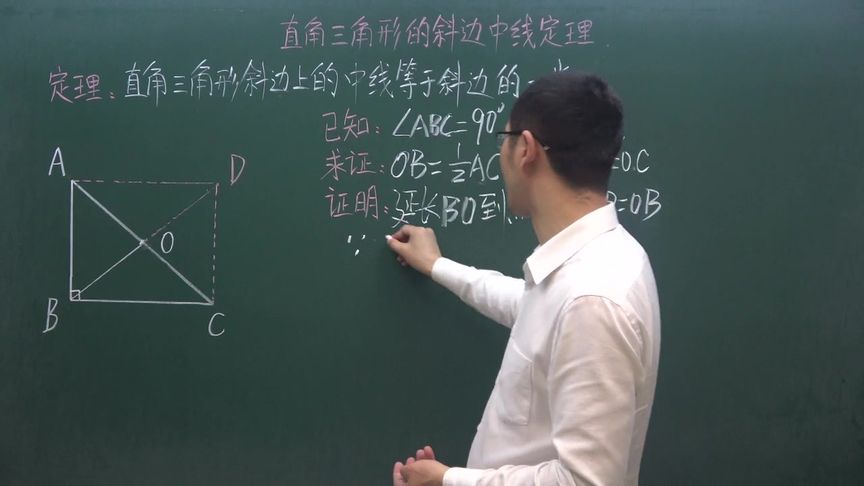 直角三角形的斜边中线定理
定理:直角三角形斜边上的中线等于斜边的一半
已知:∠ABC=90°
求证:OB=½AC =OC
证明:延长BO到 =OB
∵
A
D
O
B
C